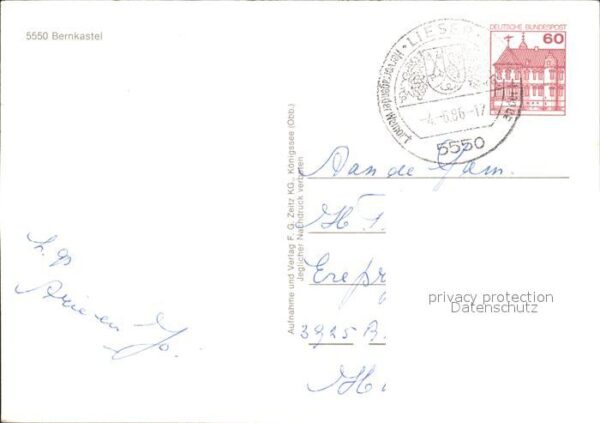 5550 Bernkastel
DEUTSCHE BUNDESPOST
60
LIESER
-4.-6.86-17
5550
Aufnahme und Verlag F. G. Zeitz KG., Königssee (Obb.)
Jeglicher Nachdruck verboten
Aan de Fam.
H
Erepr
3925 B
H
privacy protection
Datenschutz
Arie en Jo.